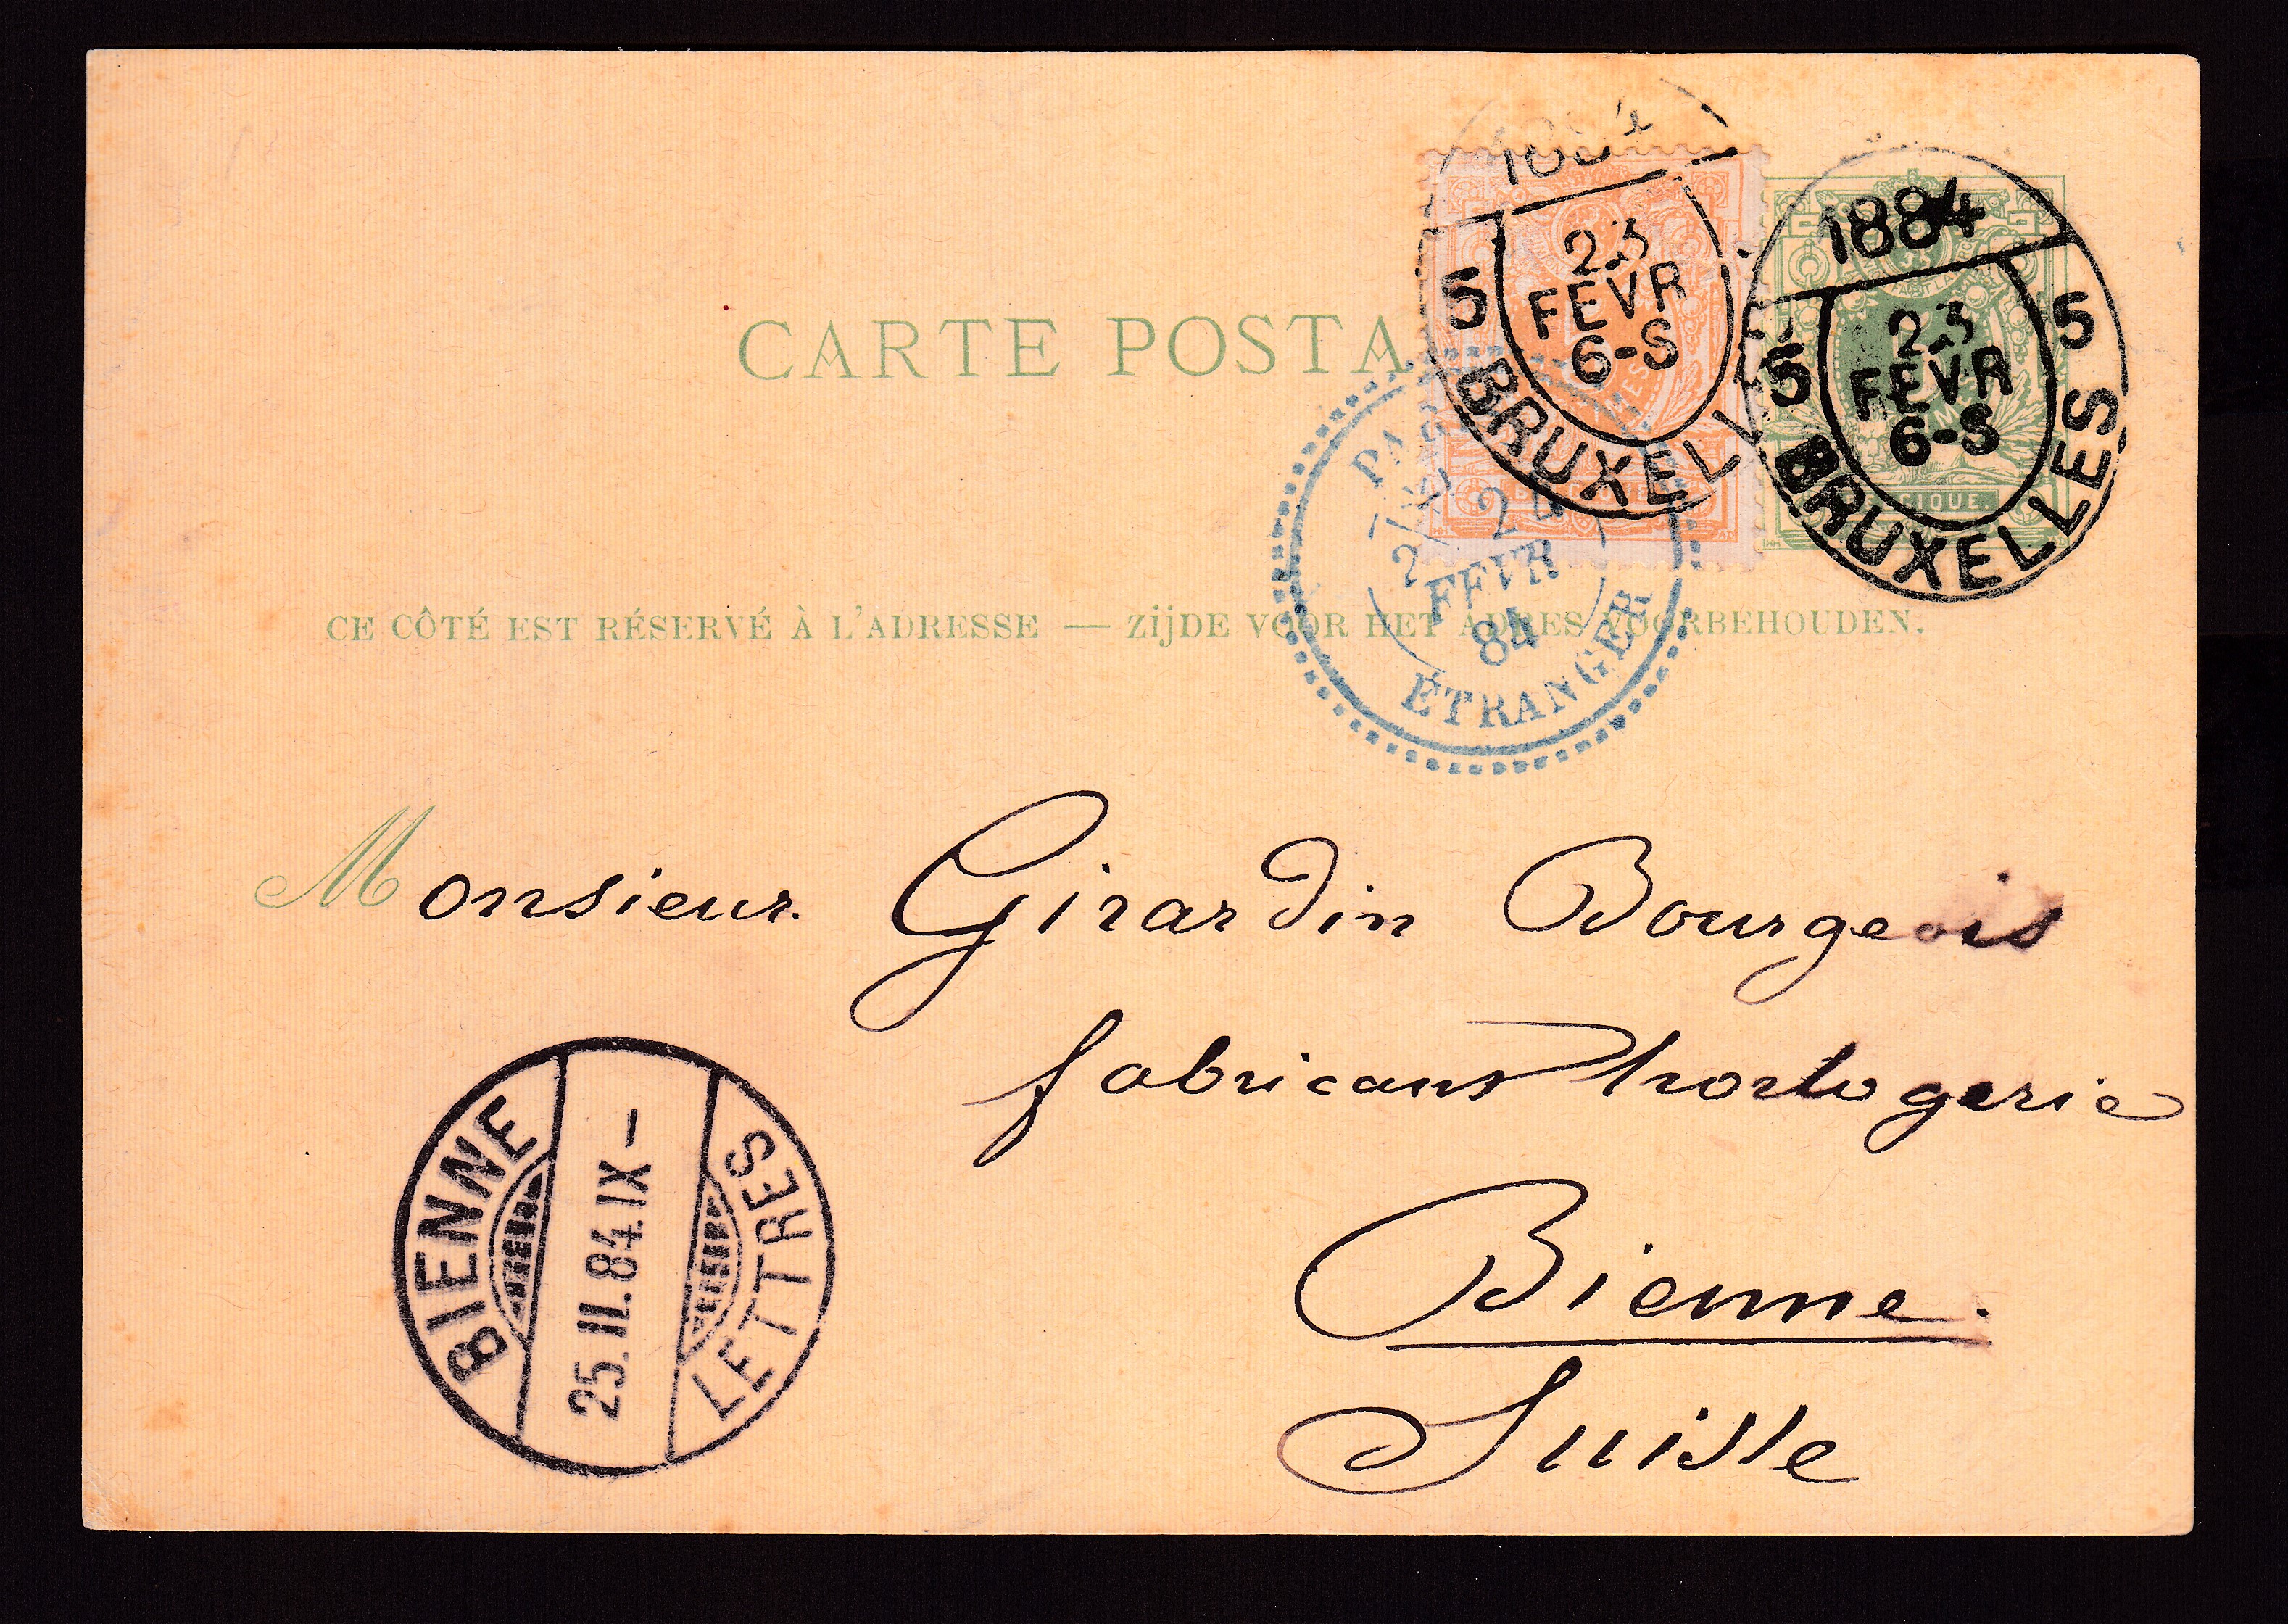 1884
5 23 FEVR 6-S
BRUXELL
1884
5 23 FEVR 6-S 5
BRUXELLES
CARTE POSTA
PA
24
FEVR
84
ÉTRANGER
CE CÔTÉ EST RÉSERVÉ À L'ADRESSE — ZijDE VOOR HET ADRES VOORBEHOUDEN.
Monsieur Girardin Bourgeois
fabricant horlogerie
Bienne.
Suisse
BIENNE
25.II.84.IX–
LETTRES